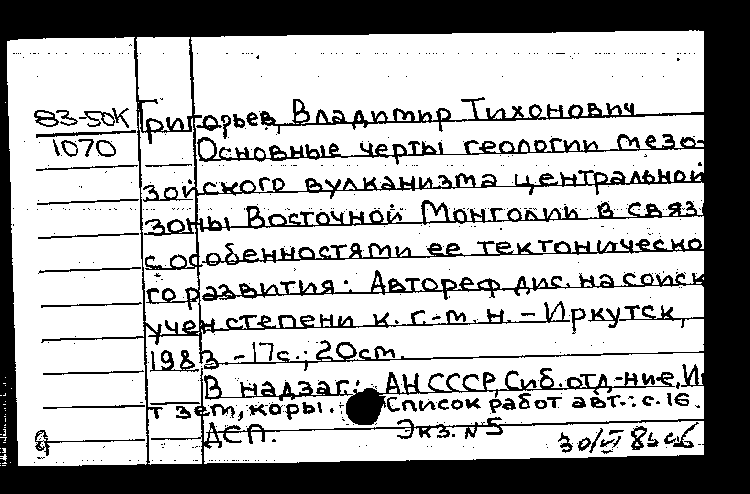 83-50К Григорьев, Владимир Тихонович
1070 Основные черты геологии мезо-
зойского вулканизма центральной
зоны Восточной Монголии в связ
с особенностями ее тектоническо
го развития: Автореф. дис. на соиск
учен степени к. г.-м. н. - Иркутск,
1983. - 17с.; 20см.
В надзаг.: АН СССР, Сиб. отд-ние, Ин
т зем, коры. Список работ авт.: с. 16.
ДСП. Экз. N 5
30/VI 83